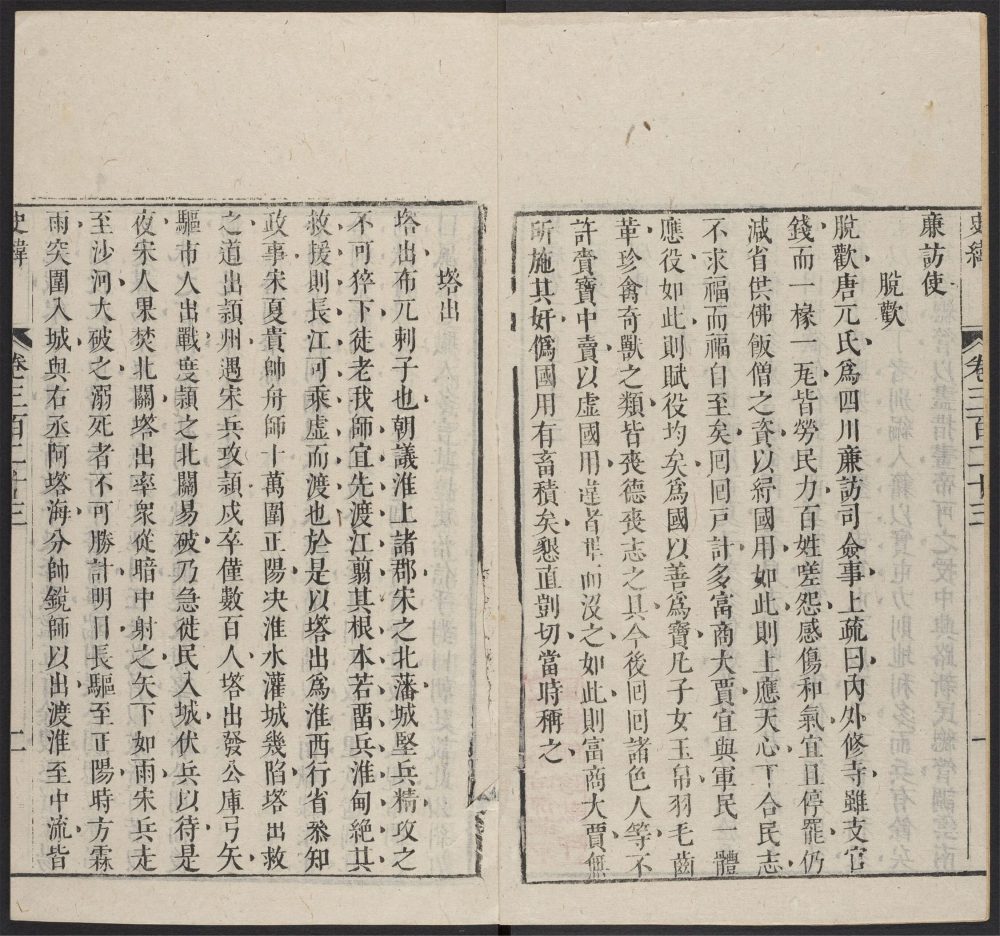 史緯 卷三百二十三 一
廉訪使
脫歡
脫歡唐兀氏爲四川廉訪司僉事上疏曰內外修寺雖支官
錢而一椽一瓦皆勞民力百姓嗟怨感傷和氣宜且停罷仍
減省供佛飯僧之資以紓國用如此則上應天心下合民志
不求福而福自至矣回回戸計多富商大賈宜與軍民一體
應役如此則賦役均矣爲國以善爲寶凡子女玉帛羽毛齒
革珍禽奇獸之類皆喪德喪志之具今後回回諸色人等不
許賷寶中賣以虛國用違者 而沒之如此則富商大賈無
所施其奸僞國用有畜積矣懇直剴切當時稱之
塔出
塔出布兀剌子也朝議淮上諸郡宋之北藩城堅兵精攻之
不可猝下徒老我師宜先渡江翦其根本若畱兵淮甸絕其
救援則長江可乘虛而渡也於是以塔出爲淮西行省叅知
政事宋夏貴帥舟師十萬圍正陽决淮水灌城幾陷塔出救
之道出頴州遇宋兵攻頴戍卒僅數百人塔出發公庫弓矢
驅市人出戰度頴之北關易破乃急徙民入城伏兵以待是
夜宋人果焚北關塔出率衆從暗中射之矢下如雨宋兵走
至沙河大破之溺死者不可勝計明日長驅至正陽時方霖
雨突圍入城與右丞阿塔海分帥銳師以出渡淮至中流皆
史緯 卷三百二十三 二